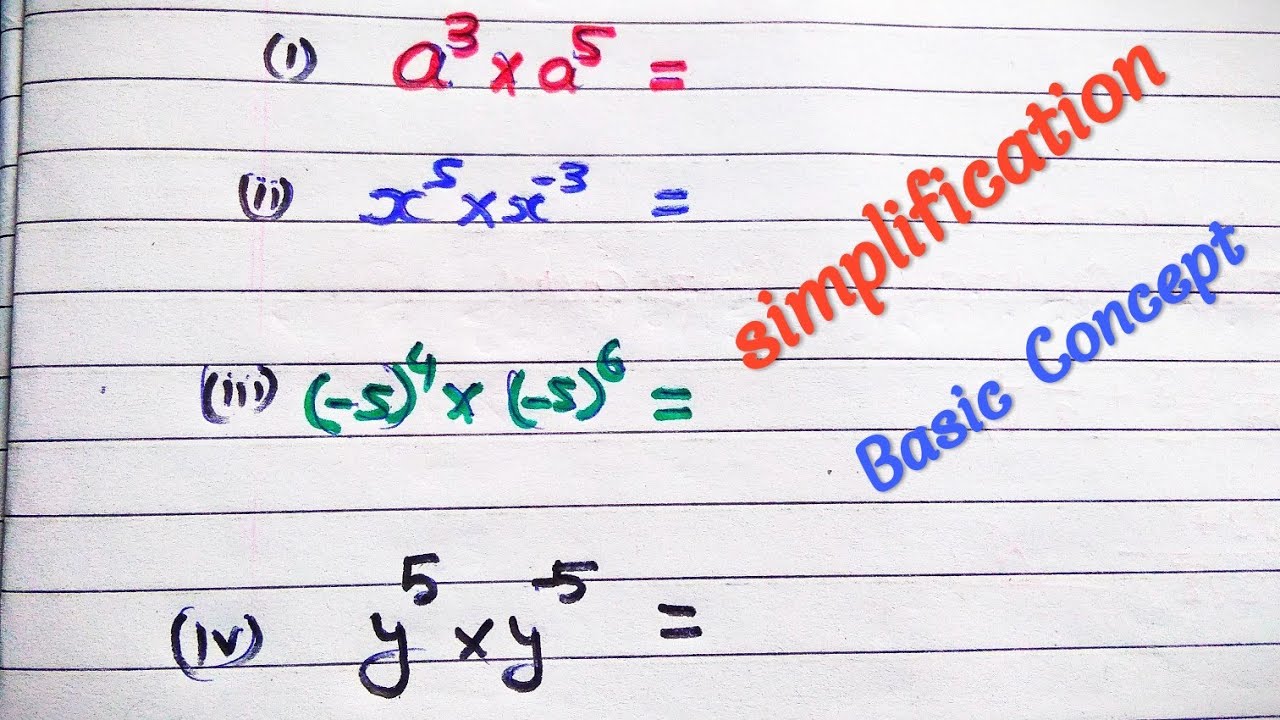 (i) a³ × a⁵ =
(ii) x⁵ × x⁻³ =
(iii) (-5)⁴ × (-5)⁶ =
(iv) y⁵ × y⁻⁵ =
simplification
Basic Concept